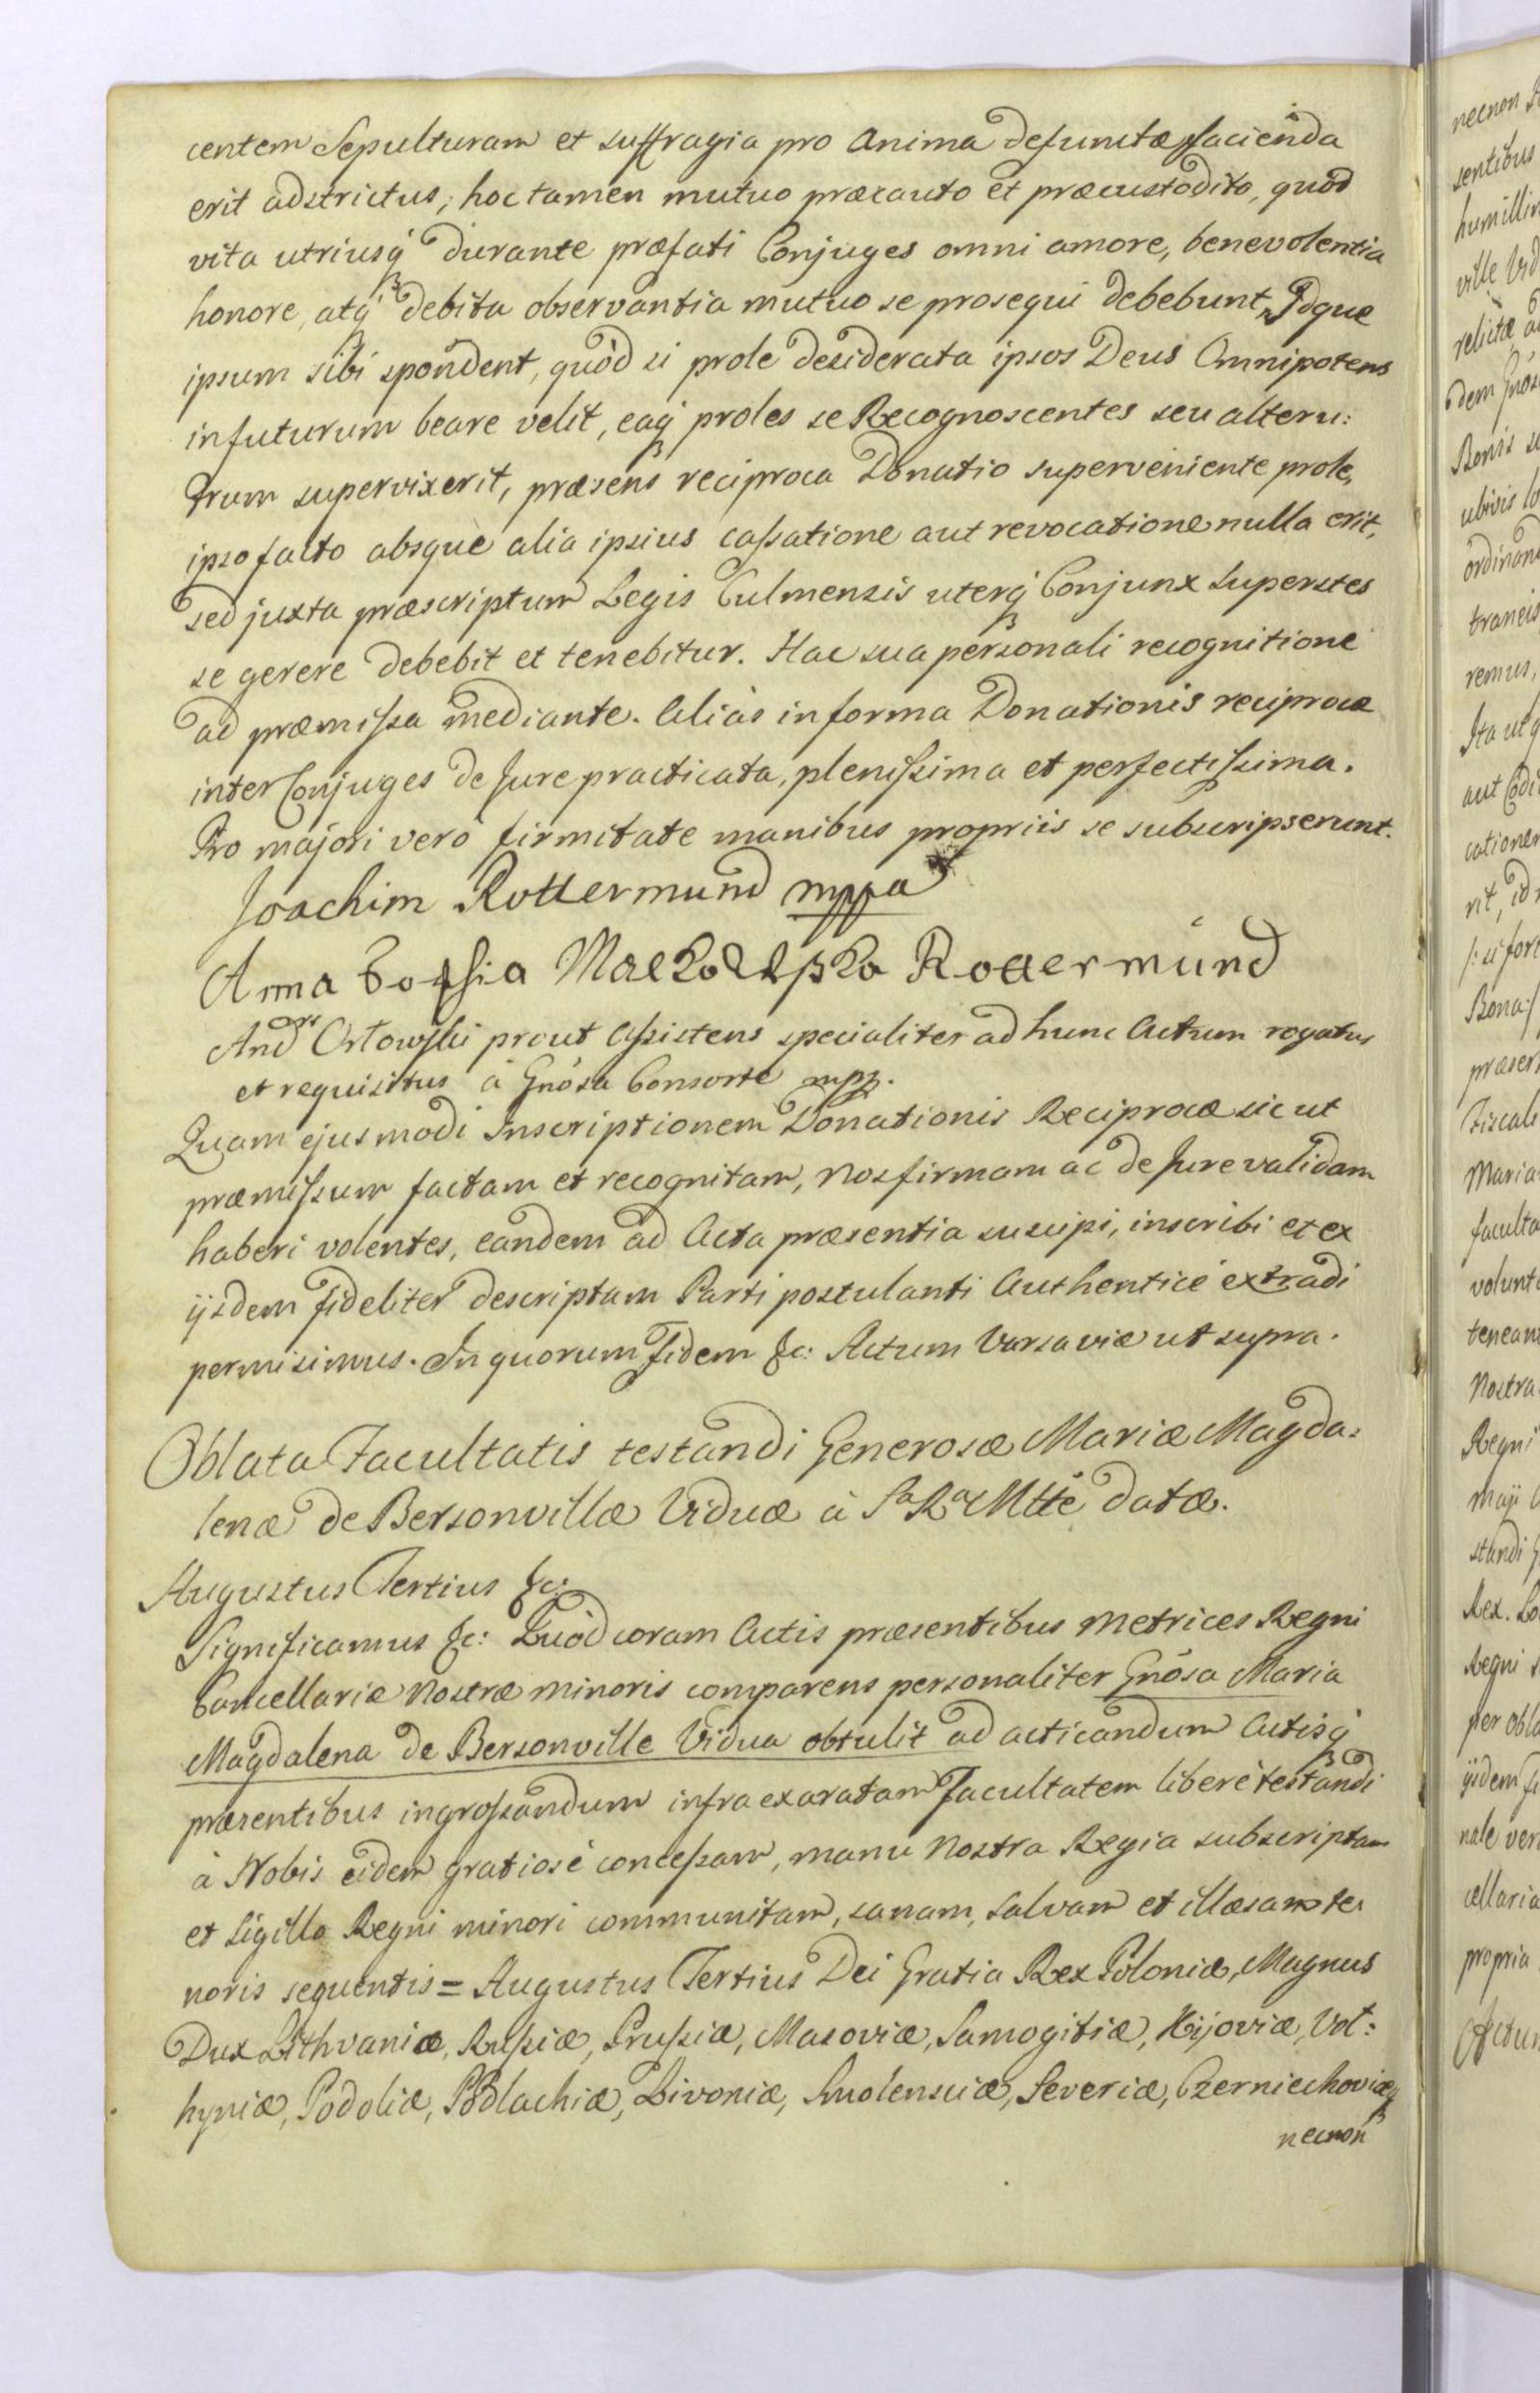 centem Sepulturam et suffragia pro Anima defunctæ facienda
erit adstrictus, hoc tamen mutuo præcauto et præcustodito, quod
vita utriusq́ durante præfati Conjuges omni amore, benevolentia
honore, atq́ debita observantia mutuo se prosequi debebunt, Idque
ipsum sibi spondent, quòd si prole desiderata ipsos Deus Omnipotens
in futurum beare velit, eaq́ proles se Recognoscentes seu alteru:
trum supervixerit, præsens reciproca Donatio superveniente prole,
ipso facto absque alia ipsius cassatione aut revocatione nulla erit,
sed juxta præscriptum Legis Culmensis uterq́ Conjunx Superstes
se gerere debebit et tenebitur. Hac sua personali recognitione
ad præmissa mediante. Aliàs in forma Donationis reciprocæ
inter Conjuges de Jure practicata, plenissima et perfectissima.
Pro majori verò firmitate manibus propriis se subscripserunt.
Joachim Rottermund mppa
Anna Rottermund
And Orłowski prout Assistens specialiter ad hunc Actum rogatus
et requisitus à Gnósa Consorte mpp.
Quam ejusmodi Inscriptionem Donationis Reciprocæ sic ut
præmissum factam et recognitam, Nos firmam ac de Jure validam
haberi volentes, eandem ad Acta præsentia suscipi, inscribi et ex
ijsdem fideliter descriptam Parti postulanti Authenticè extradi
permisimus. In quorum Fidem &c: Actum Varsaviæ ut supra.
Oblata Facultatis testandi Generosæ Mariæ Magda:
lenæ de Bersonvillæ Viduæ à Sa Ra Mtte datæ.
Augustus Tertius &c:
Significamus &c: Quòd coram Actis præsentibus Metrices Regni
Cancellariæ Nostræ minoris comparens personaliter Gnósa Maria
Magdalena de Bersonville Vidua obtulit ad acticandum Actisq́
præsentibus ingrossandum infra exaratam Facultatem liberè testandi
à Nobis eidem gratiosè concessam, manu Nostra Regia subscriptam
et Sigillo Regni minori communitam, sanam, salvam et illæsam te:
noris sequentis = Augustus Tertius Dei Gratia Rex Poloniæ, Magnus
Dux Lithvaniæ, Russiæ, Prussiæ, Masoviæ, Samogitiæ, Kijoviæ, Vol:
hyniæ, Podoliæ, Podlachiæ, Livoniæ, Smolensciæ, Severiæ, Czerniechoviæq́
necnon